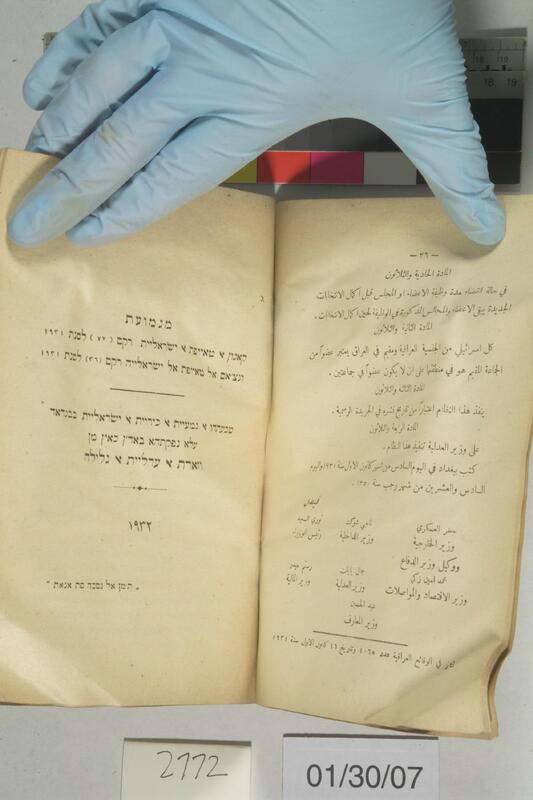 — ٣٦ —
المادة الحادية والثلاثون
في حالة انقضاء مدة وظيفة الاعضاء او المجلس قبل اكمال الانتخابات
الجديدة يبقى الاعضاء والمجالس المذكورة في الوظيفة لحين اكمال الانتخابات .
المادة الثانية والثلاثون
كل اسرائيلي من الجنسية العراقية ومقيم في العراق يعتبر عضواً من
الجماعة المقيم هو في منطقتها على ان لا يكون عضواً في جماعتين .
المادة الثالثة والثلاثون
ينفذ هذا النظام اعتباراً من تاريخ نشره في الجريدة الرسمية .
المادة الرابعة والثلاثون
على وزير العدلية تنفيذ هذا النظام .
كتب ببغداد في اليوم السادس من شهر كانون الاول سنة ١٩٣١ واليوم
السادس والعشرين من شهر رجب سنة ١٣٥٠ .
جعفر العسكري
وزير الخارجية
ووكيل وزير الدفاع
ناجي شوكت
وزير الداخلية
نوري السعيد
رئيس الوزراء
محمد امين زكي
وزير الاقتصاد والمواصلات
جمال بابان
وزير العدلية
رستم حيدر
وزير المالية
عبد الحسين
وزير المعارف
نشر في الوقائع العراقية عدد ١٠٦٥ وتاريخ ١٦ كانون الاول سنة ١٩٣١
מגמועת
קאנון א טאייפת א ישראלייה רקם (٧٧) לסנת ١٩٣١
ונציאם אל טאייפת אל ישראלייה רקם (٣٦) לסנת ١٩٣١
בבגדאד
עלא נפקתהא באדן כאץ מן
וזארת א עדליית א גלילה
١٩٣٢
2772
01/30/07
18
19